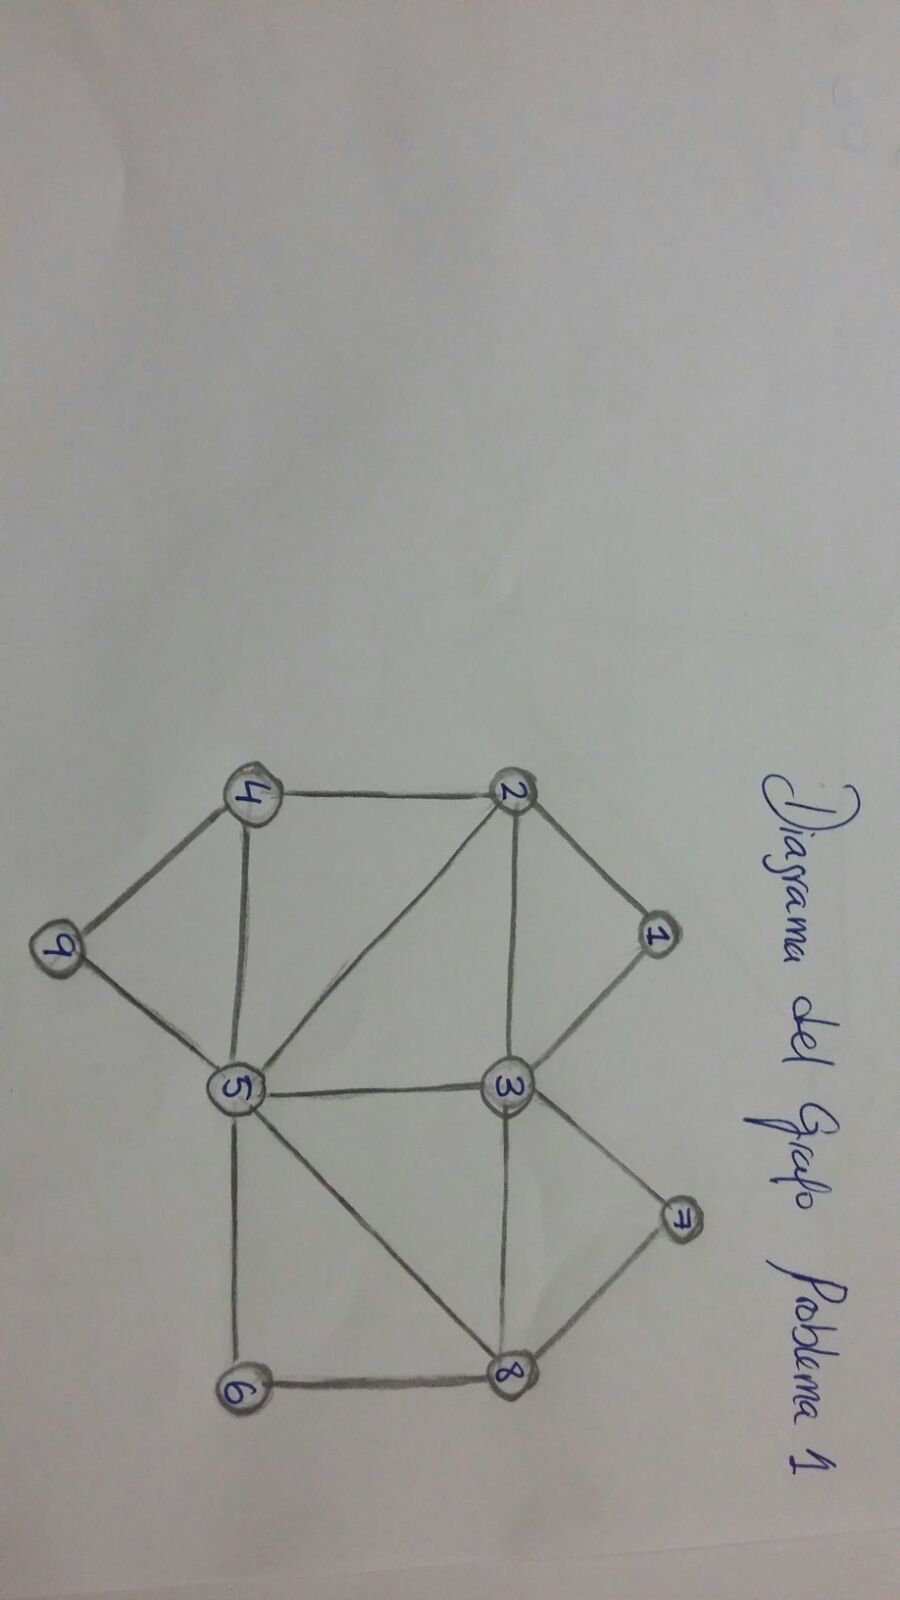 Diagrama del Grafo Problema 1
1
7
2
3
8
4
5
6
9